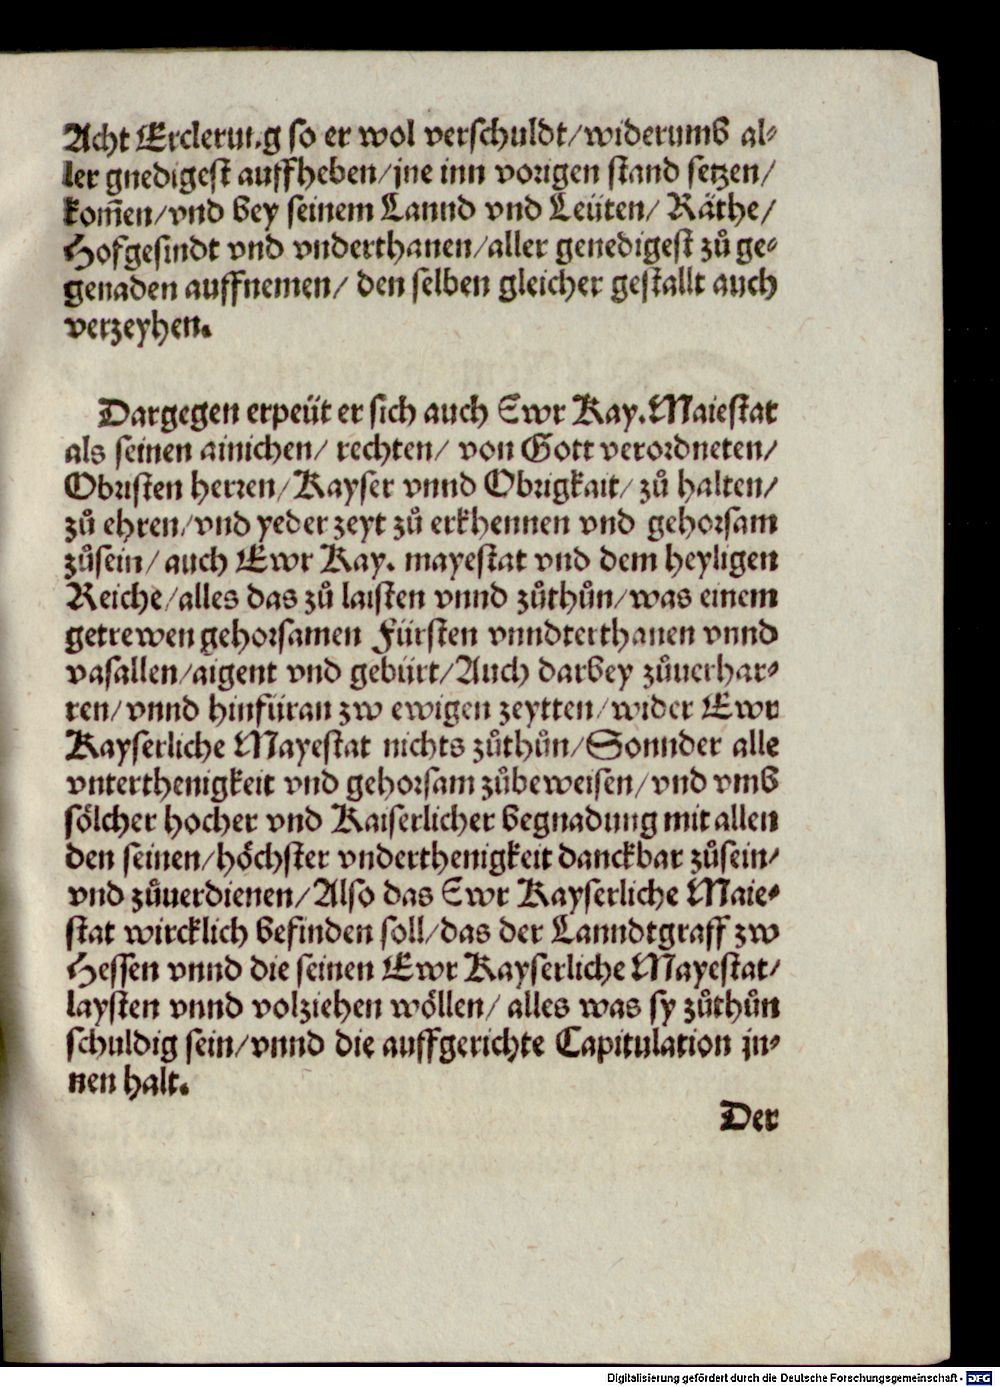 Acht Erclerung so er wol verschuldt/widerumb al-
ler gnedigest auffheben/jne inn vorigen stand setzen/
kom̃en/vnd bey seinem Lannd vnd Leüten/ Räthe/
Hofgesindt vnd vnderthanen/aller genedigest zů ge-
genaden auffnemen/ den selben gleicher gestallt auch
verzeyhen.
Dargegen erpeüt er sich auch Ewr Kay. Maiestat
als seinen ainichen/ rechten/ von Gott verordneten/
Obristen herren/Kayser vnnd Obrigkait/ zů halten/
zů ehren/vnd yeder zeyt zů erkhennen vnd gehorsam
zůsein/ auch Ewr Kay. mayestat vnd dem heyligen
Reiche/alles das zů laisten vnnd zůthůn/was einem
getrewen gehorsamen Fürsten vnndterthanen vnnd
vasallen/aigent vnd gebürt/Auch darbey zůuerhar-
ren/vnnd hinfüran zw ewigen zeytten/wider Ewr
Kayserliche Mayestat nichts zůthůn/Sonnder alle
vnterthenigkeit vnd gehorsam zůbeweisen/vnd vmb
sölcher hocher vnd Kaiserlicher begnadung mit allen
den seinen/höchster vnderthenigkeit danckbar zůsein/
vnd zůuerdienen/Also das Ewr Kayserliche Maie-
stat wircklich befinden soll/das der Lanndtgraff zw
Hessen vnnd die seinen Ewr Kayserliche Mayestat/
laysten vnnd volziehen wöllen/ alles was sy zůthůn
schuldig sein/vnnd die auffgerichte Capitulation jn-
nen halt.
Der
Digitalisierung gefördert durch die Deutsche Forschungsgemeinschaft - DFG